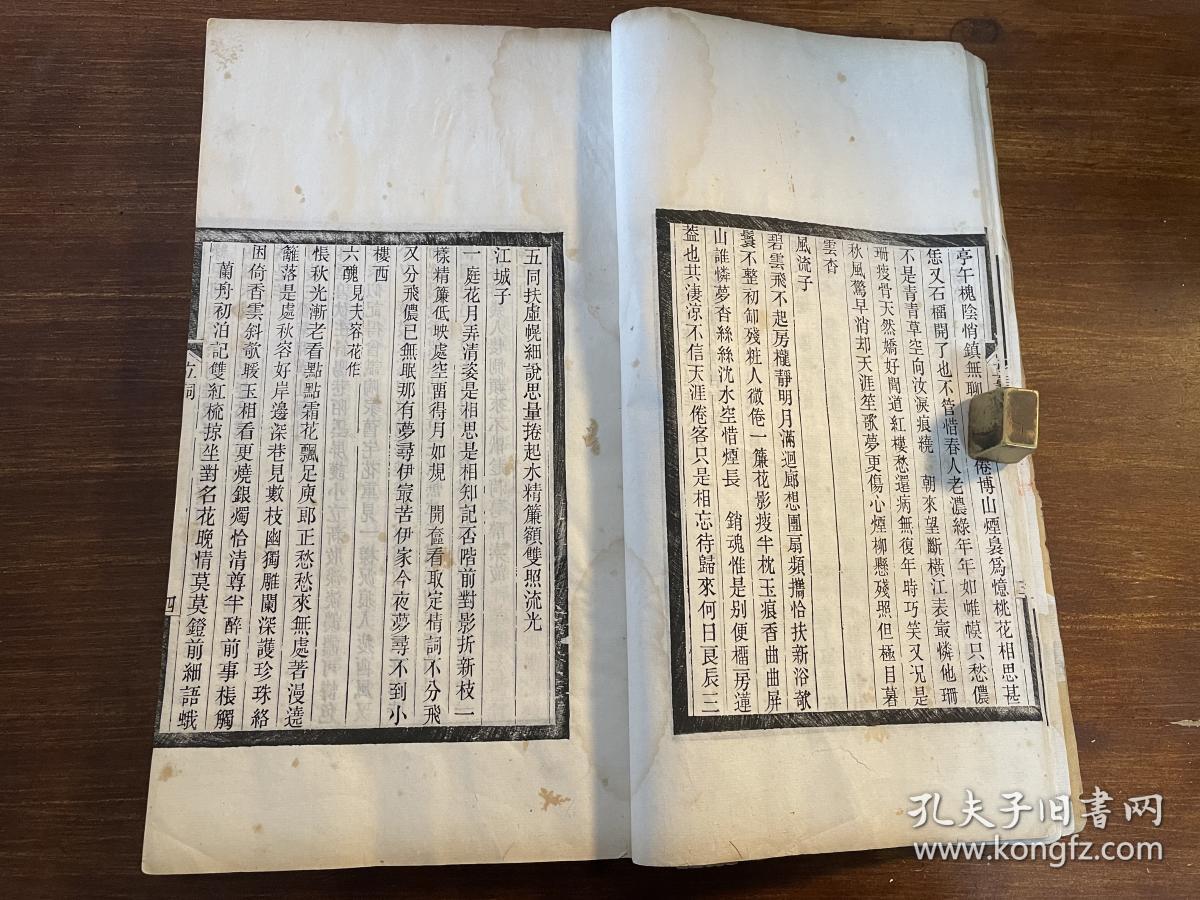 亭午槐陰悄鎮無聊
倦博山煙裊爲憶桃花相思甚
恁又石橊開了也不管惜春人老濃綠年年如帷幙只愁儂
不是青青草空向汝淚痕繞　朝來望斷橫江表最憐他珊
珊瘦骨天然嬌好聞道紅樓愁還病無復年時巧笑又況是
秋風驚早消却天涯笙歌夢更傷心煙柳懸殘照但極目暮
雲杳
風流子
碧雲飛不起房櫳靜明月滿迴廊想團扇頻攜恰扶新浴欹
鬟不整初卸殘粧人微倦一簾花影瘦半枕玉痕香曲曲屏
山誰憐夢杳絲絲沈水空惜煙長　銷魂惟是別便橊房蓮
葢也共淒涼不信天涯倦客只是相忘待歸來何日良辰三
三
五同扶虛幌細說思量捲起水精簾額雙照流光
江城子
一庭花月弄清姿是相思是相知記否階前對影折新枝一
樣精簾低映處空畱得月如規　開奩看取定情詞不分飛
又分飛儂已無眠那有夢尋伊最苦伊家今夜夢尋不到小
樓西
六醜見夫容花作
悵秋光漸老看點點霜花飄足庾郎正愁愁來無處著漫遶
籬落是處秋容好岸邊深巷見數枝幽獨雕闌深護珍珠絡
困倚香雲斜欹暖玉相看更燒銀燭恰清尊半醉前事棖觸
蘭舟初泊記雙紅梳掠坐對名花晚情莫莫鐙前細語蛾
四
孔夫子旧书网
www.kongfz.com